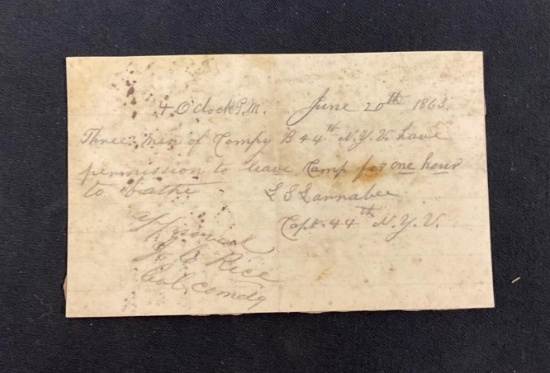 4 O'clock P.M. June 20th 1863.
Three men of Compy B 44th N.Y.V. have
permission to leave Camp for one hour
to bathe
L S Larrabee
Capt. 44th N.Y.V.
approved
J. C. Rice
Col. comdg